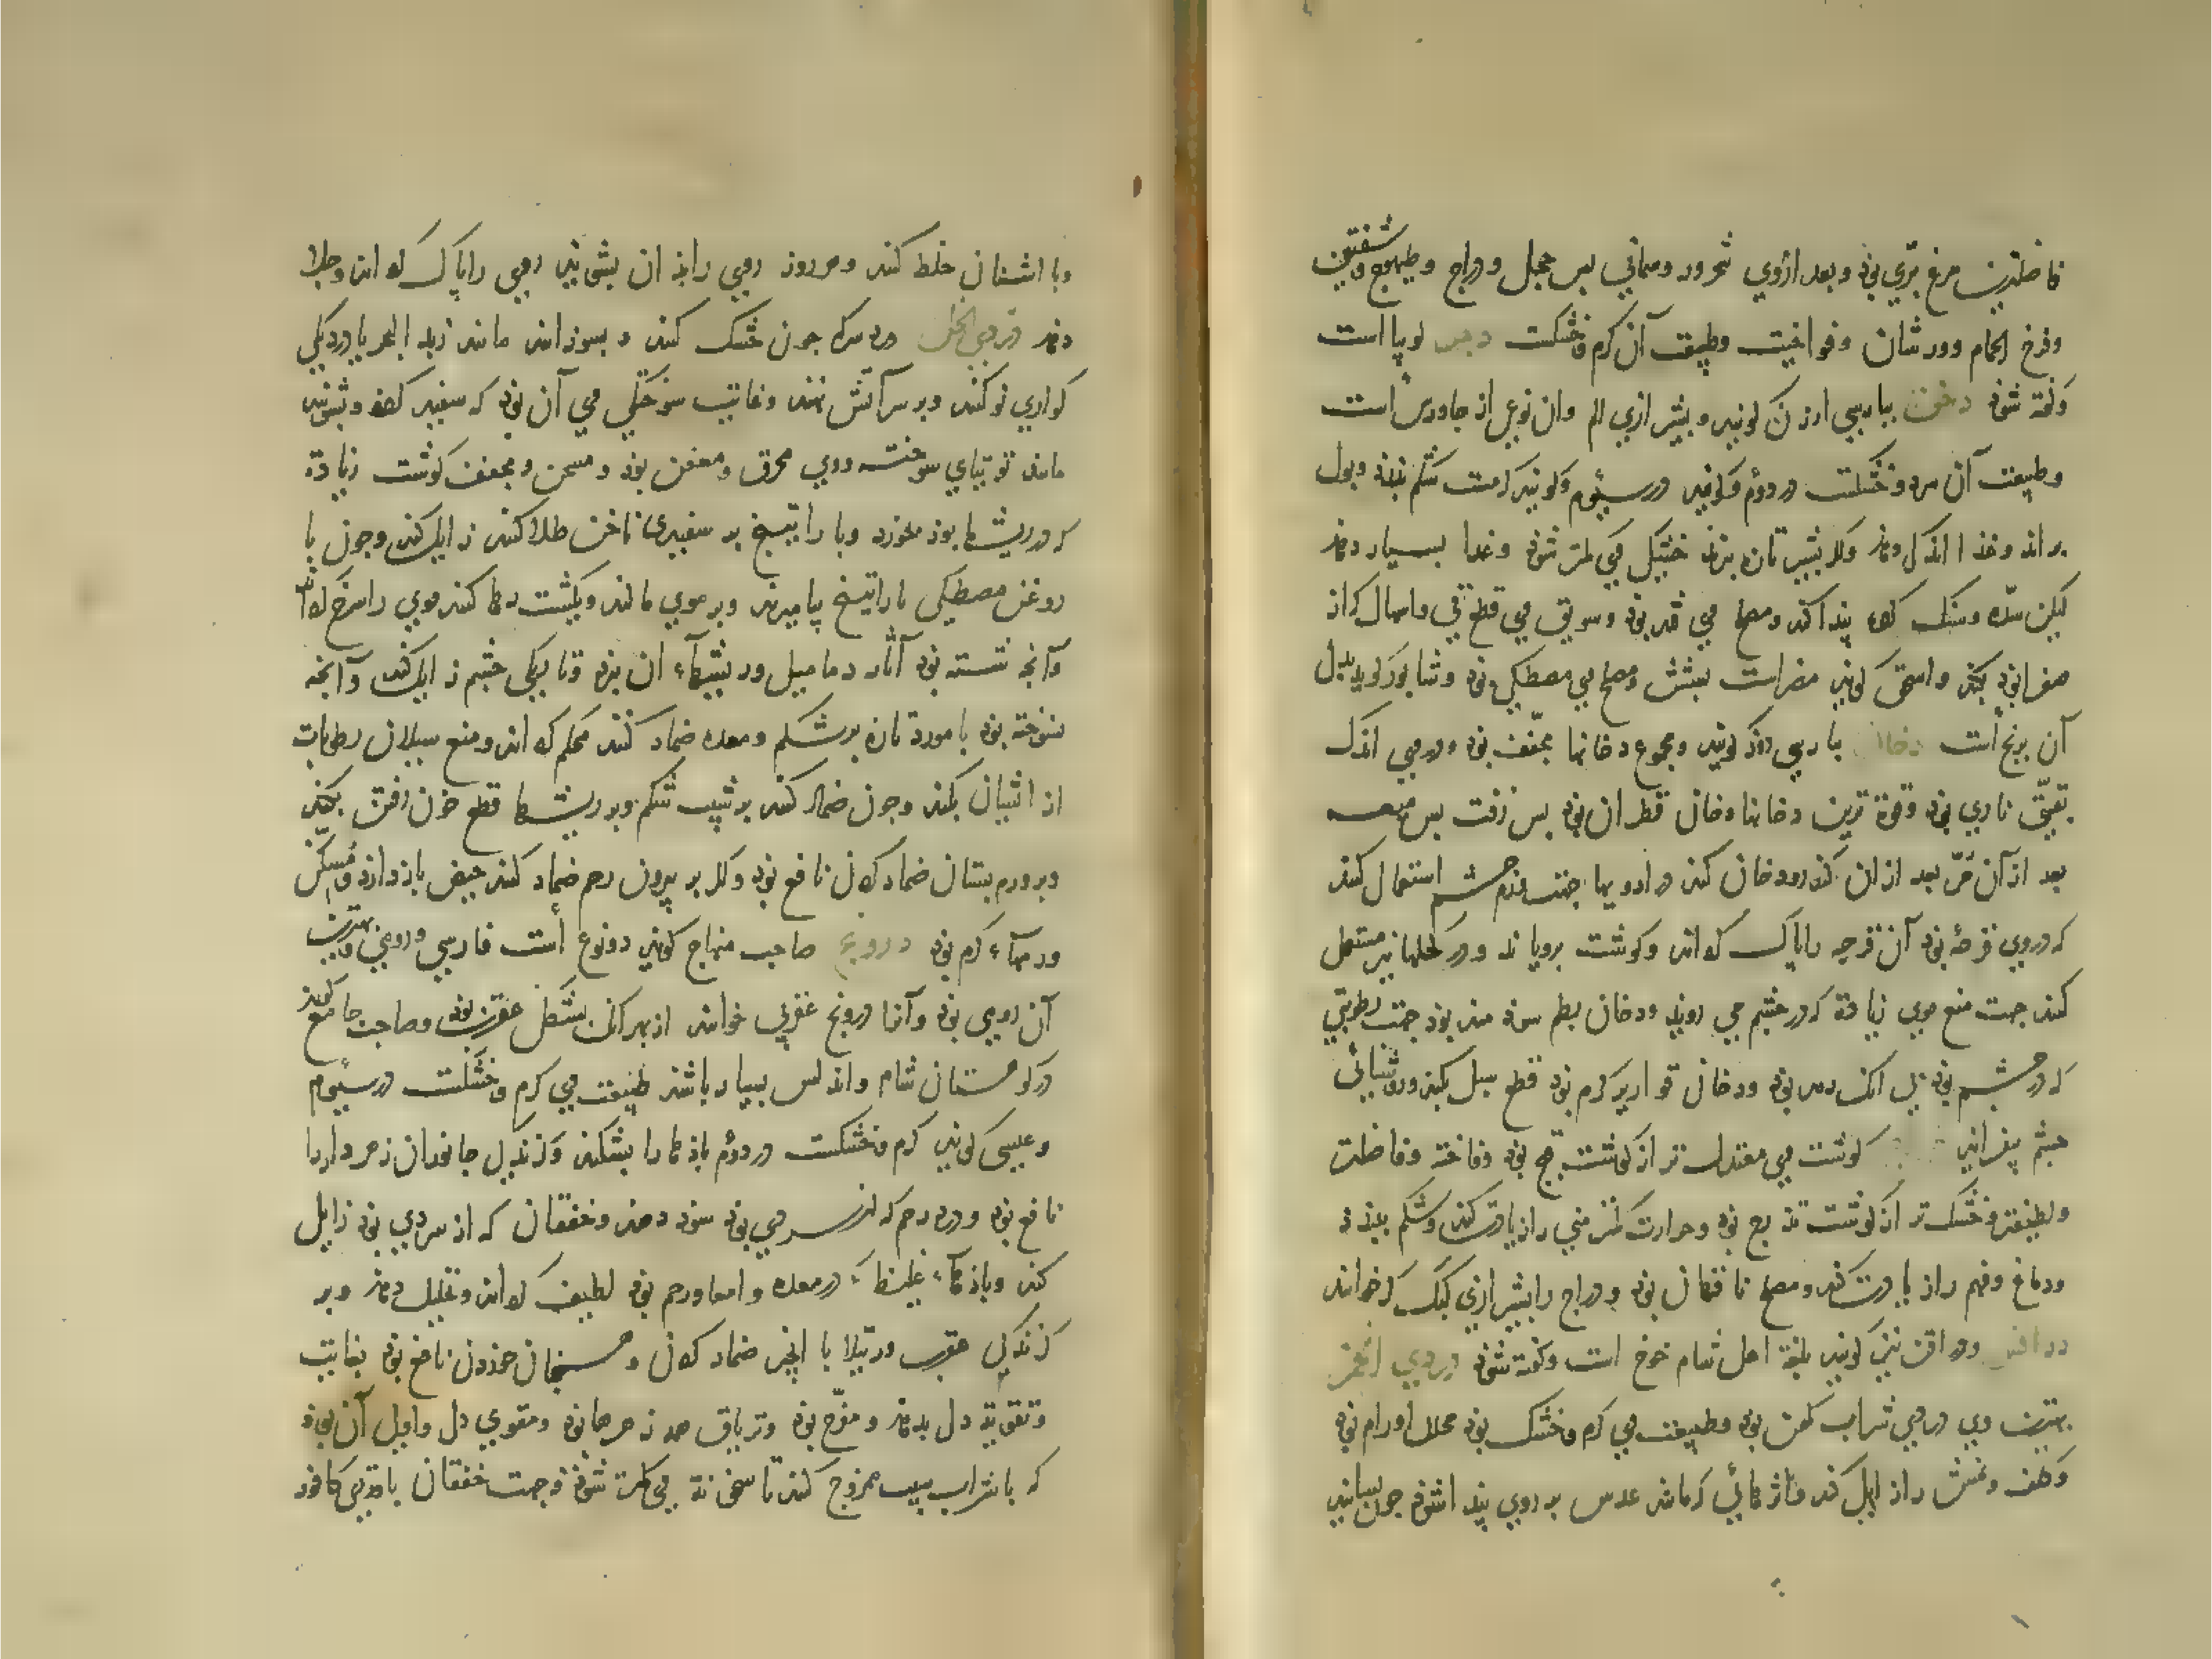 فاضلترین مرغ برّی بود و بعد ازوی شحرور و سمانی پس حجل و دراج و طیهوج و شفنین
و فرخ الحمام و ورشان و فواخیت و طبیعت آن کرم و خشکست دجر لوبیا است
و کفته شود دخن بپارسی ارزن کویند و بشیرازی الم و ان نوعی از جاورس است
و طبیعت آن سرد و خشکست در دوم و کویند در سیوم و کویند کرمست شکم ببندد و بول
براند و غذا اندکی دهد و کر بشیر تازه بپزند خشکی وی کمتر شود و غذا بسیار دهد
لیکن سده و سنک کرده پیدا کند و مصلح وی قند بود و سویق وی قطع قی و اسهال که از
صفرا بود بکند و اسحق کوید مضراست بشش و مصلح وی مصطکی بود و شابور کوید بدل
آن برنج است دخان بپارسی دود کویند و مجموع دخانها مجفف بود و در وی اندک
بقیتی ناری بود و قوی ترین دخانها دخان قطران بود پس زفت پس میعه
بعد از آن مر بعد از ان کندر و دخان کندر در ادویها جهت ورم چشم استعمال کنند
که در وی قرحه بود آن قرحه را پاک کرداند و کوشت برویاند و در کحلها نیز مستعمل
کنند جهت منع موی زیاده که در چشم می روید و دخان بطم سودمند بود جهت رطوبتی
که در چشم بود بی آنک رمد بود و دخان قواریر کرم بود قطع سبل بکند و روشنائی
چشم بیفزاید کوشت وی معتدلتر از کوشت قبج بود و فاخته و فاضلتر
و لطیفتر و خشکتر از کوشت تدرج بود و حرارت کمتر منی را زیادت کند و شکم ببندد
و دماغ و فهم را زیادت کند و مصلح ناقهان بود و دراج را بشیرازی کبک کر خوانند
دراقن و دراقن نیز کویند بلغة اهل شام خوخ است و کفته شود دردی الخمر
بهترین وی دردی شراب کهن بود و طبیعت وی کرم و خشک بود محلل اورام بود
و کلف و نمش را زایل کند و اثرهائی که مانند عدس بر روی پیدا شود چون بسایند
و با اشنان خلط کنند و هر روز روی را بذان بشویند روی را پاک کرداند و جلا
دهد دردی الخل دردی سرکه چون خشک کنند و بسوزانند مانند زبد البحر یا در دیکی
کواری نو کنند و بر سر آتش نهند و غایت سوختکی وی آن بود که سفید کردد و بشویند
مانند توتیای سوخته و وی محرق و معفن بود و مسخن و مجفف کوشت زیاده
که در ریشها بود بخورد و با راتینج بر سفیدی ناخن طلا کنند زایل کند و چون با
روغن مصطکی یا راتینج بیامیزند و بر موی مالند و یکشب رها کنند موی را سرخ کرداند
و آنچه شسته بود آثار دمامیل و ریشهاء ان ببرد و تاریکی چشم زایل کند و آنچه
نسوخته بود با مورد تازه بر شکم و معده ضماد کنند محکم کرداند و منع سیلان رطوبات
از ایشان بکند و چون ضماد کنند بر شیب شکم و بر ریشها قطع خون رفتن بکند
و بر ورم پستان ضماد کردن نافع بود و کر بر بیرون رحم ضماد کنند حیض باز دارد و مسکن
ورمهاء کرم بود درونج صاحب منهاج کوید دو نوع است فارسی و رومی و بهترین
آن رومی بود و آنرا درونج عقربی خوانند از بهر آنک بشکل عقرب بود و صاحب جامع کوید
در کوهستان شام و اندلس بسیار باشد طبیعت وی کرم و خشکست در سیوم
و عیسی کوید کرم و خشکست در دوم بادها را بشکند و کزیدکی جانوران زهردار را
نافع بود و درد رحم که از سردی بود سود دهد و خفقان که از سردی بود زایل
کند و بادهاء غلیظ که در معده و امعا و رحم بود لطیف کرداند و تحلیل دهد و بر
کزیدکی عقرب و رتیلا با انجیر ضماد کردن و همچنان خوردن نافع بود بغایت
و تقویة دل بدهد و مفرح بود و تریاق همه زهرها بود و مقوی دل و اولی آن بود
که با شراب سیب ممزوج کنند تا سخونة وی کمتر شود و جهت خفقان با قدری کافور